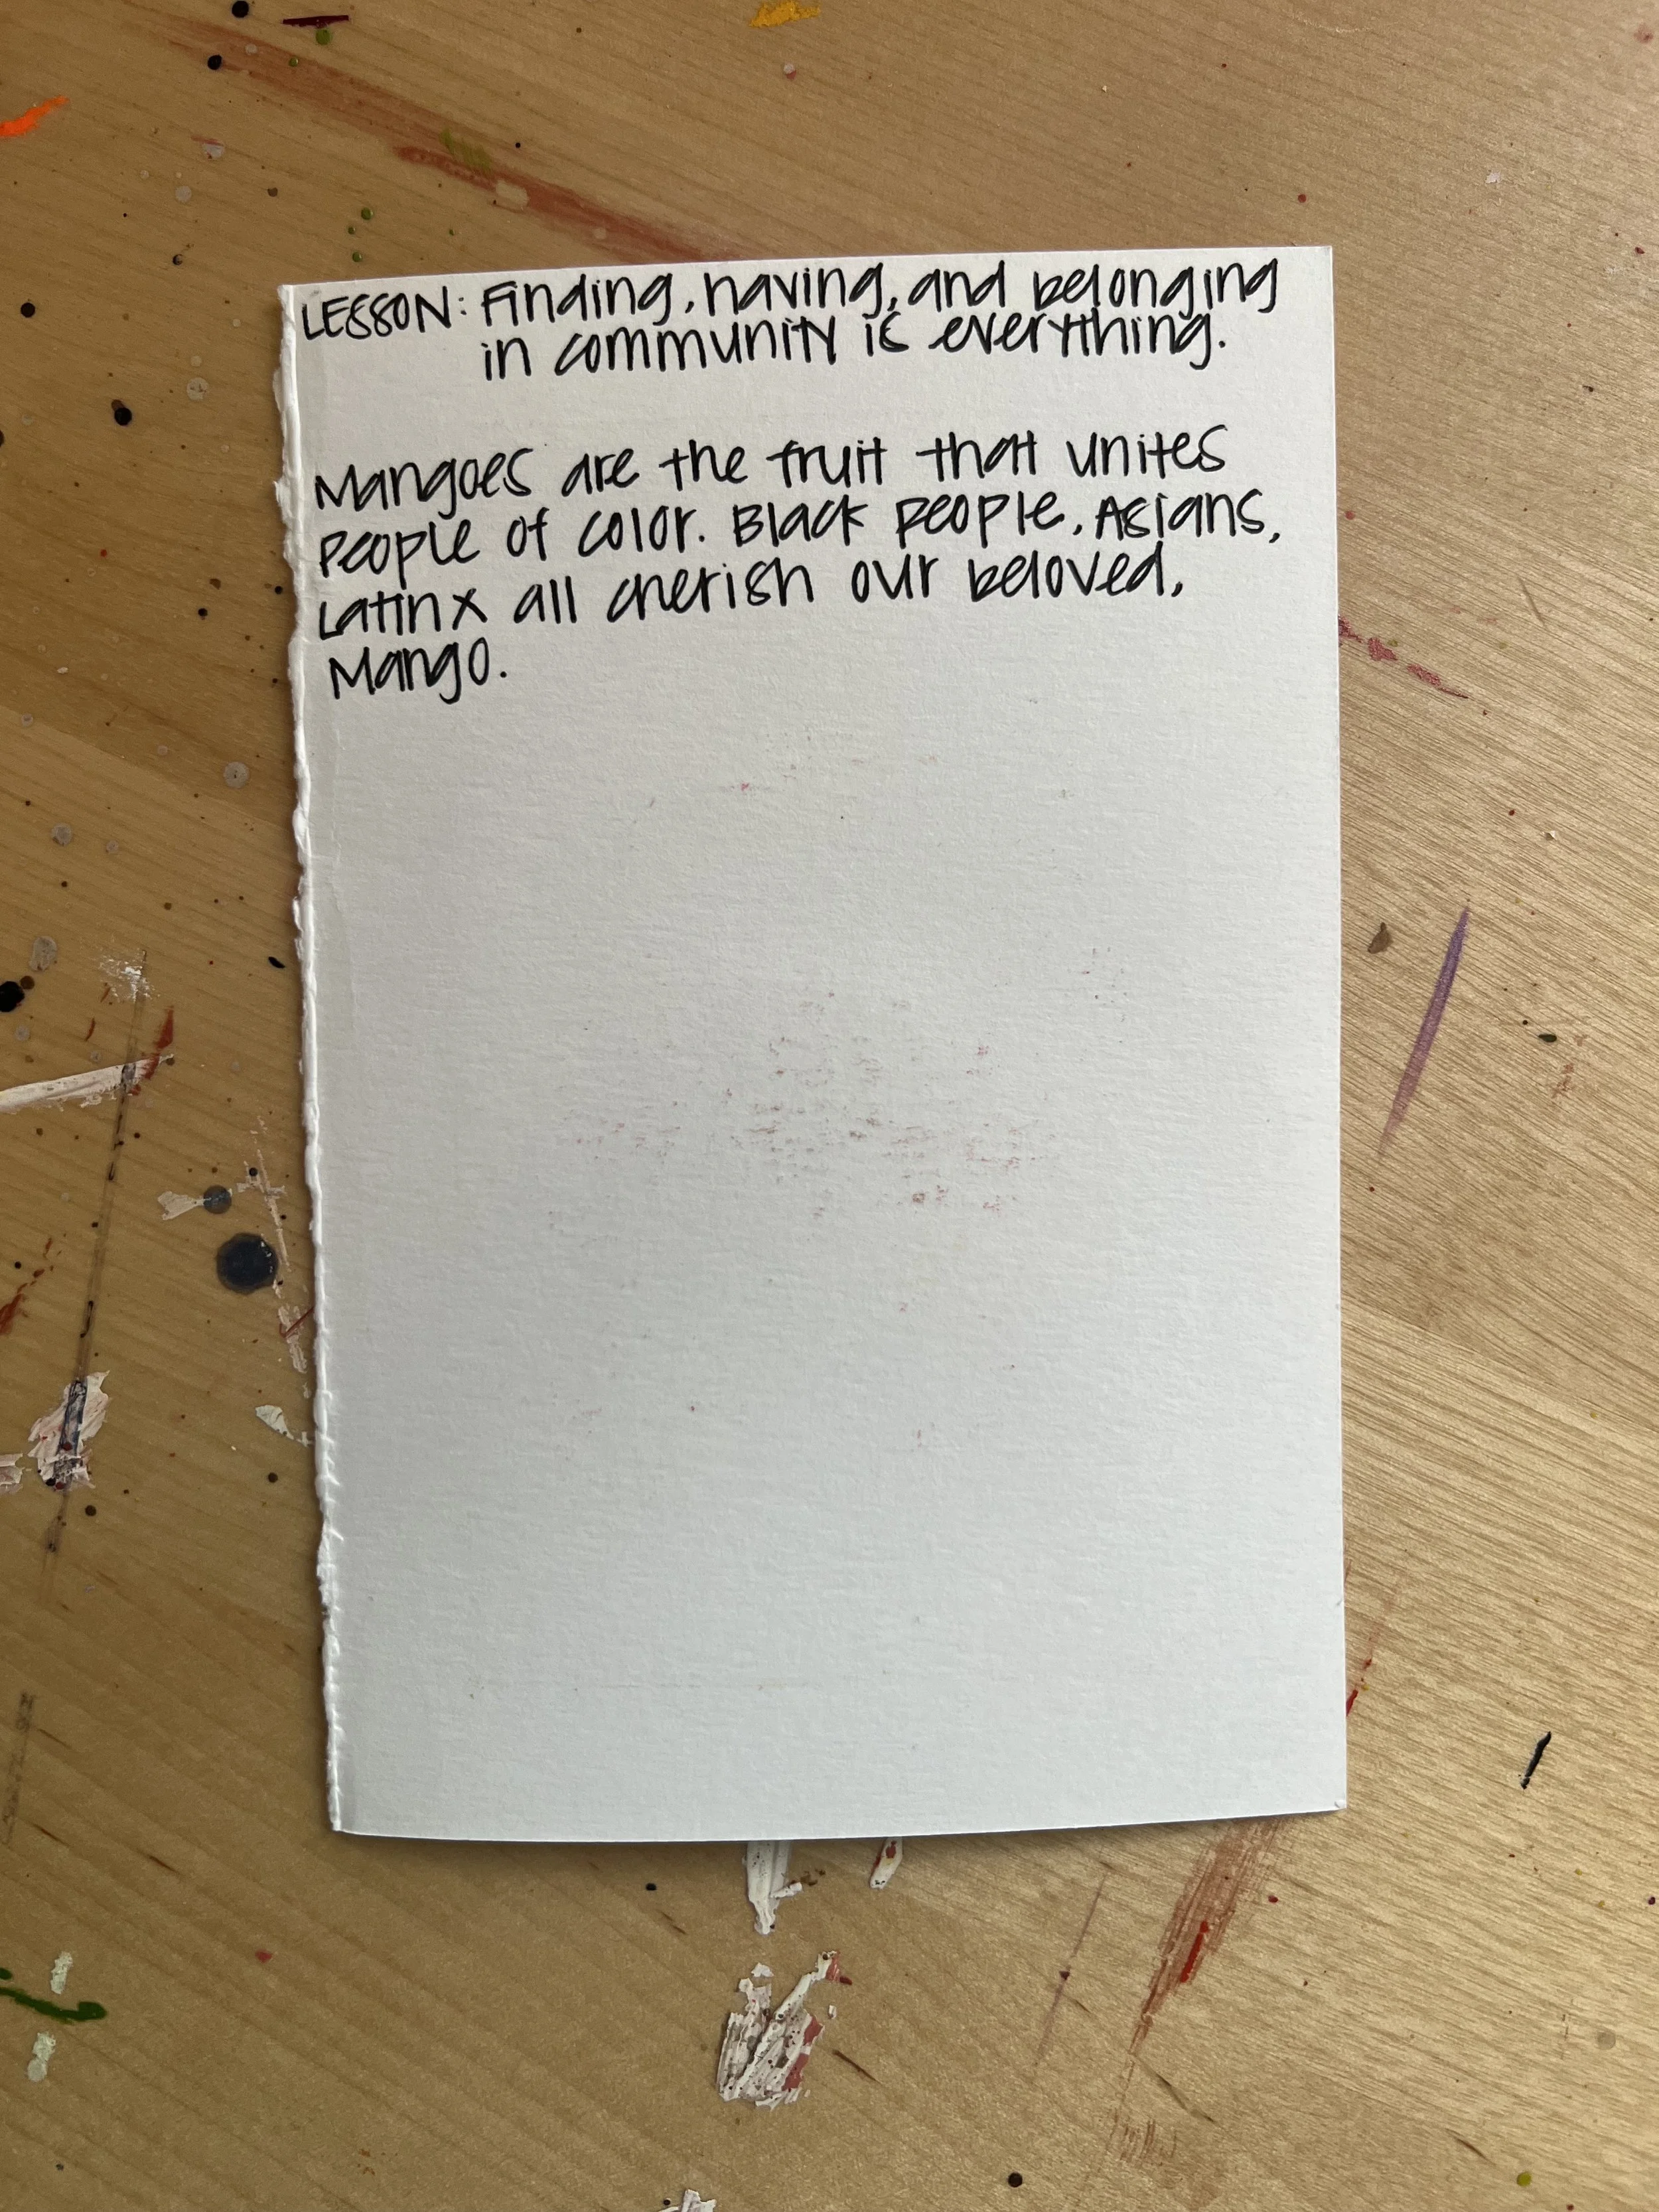 LESSON: Finding, having, and belonging
in community is everything.
Mangoes are the fruit that unites
people of color. Black people, Asians,
Latinx all cherish our beloved,
Mango.